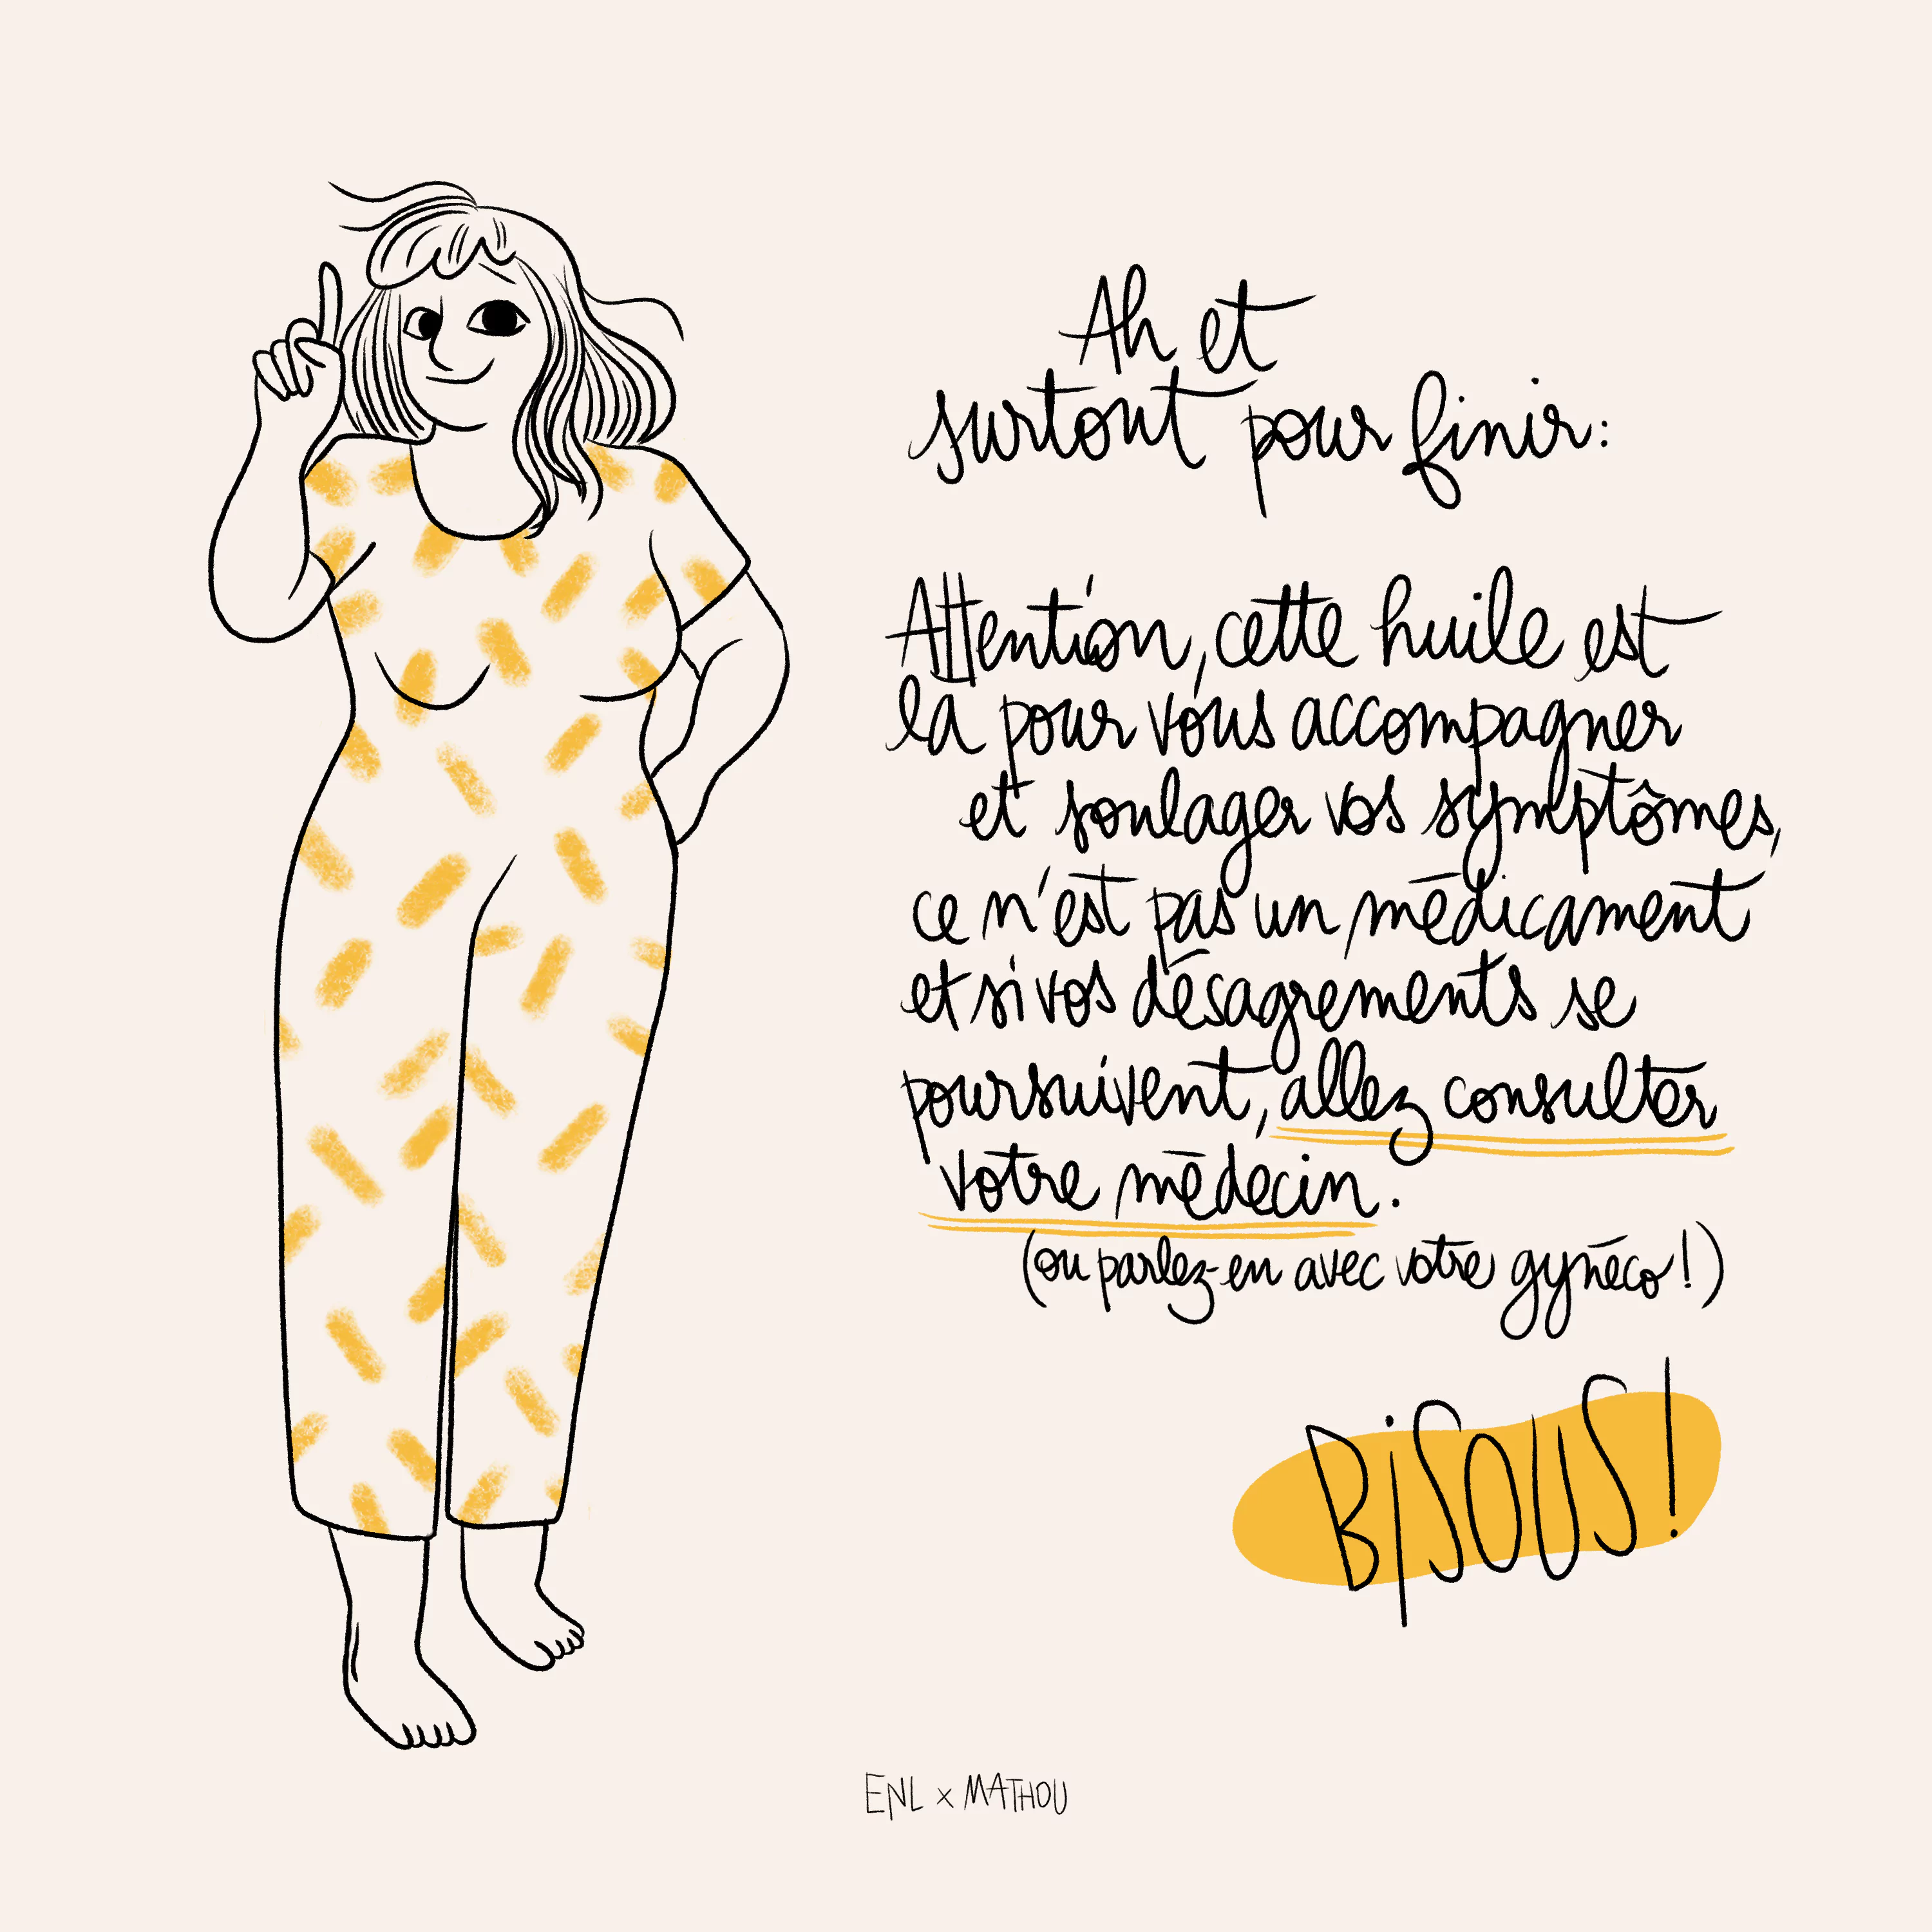 Ah et
surtout pour finir:
Attention, cette huile est
là pour vous accompagner
et soulager vos symptômes,
ce n'est pas un médicament
et si vos désagrements se
poursuivent, allez consulter
votre médecin.
(ou parlez-en avec votre gynéco!)
BiSOUS!
ENL x MATHOU